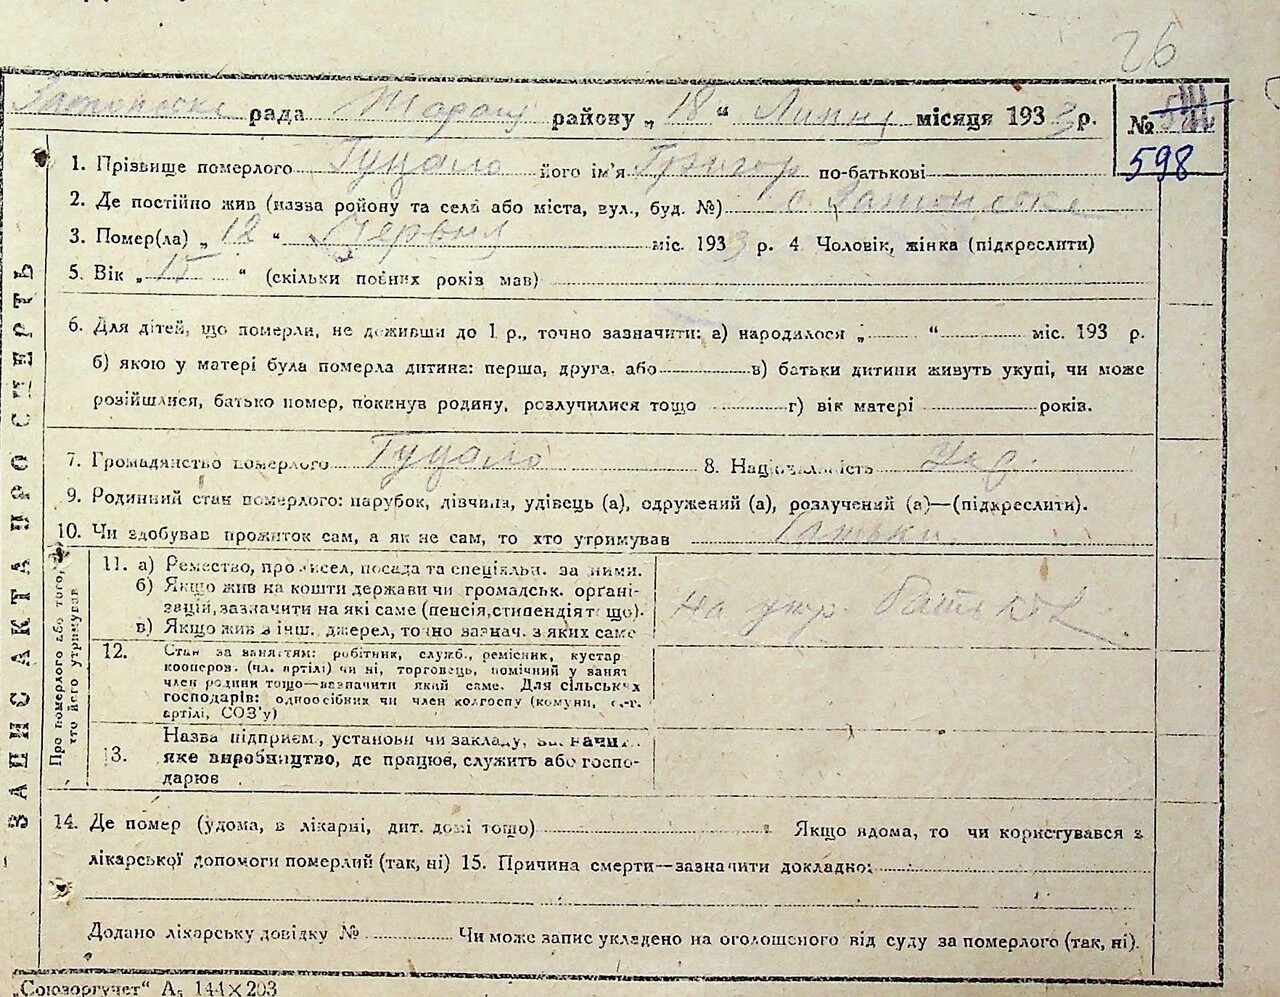 26
рада району „ 18 “ Липня місяця 1933 р. №
598
1. Прізвище померлого Гуцало його ім'я Григор по-батькові
2. Де постійно жив (назва району та села або міста, вул., буд. №) с.
3. Помер(ла) „ 12 “ Червня міс. 1933 р. 4. Чоловік, жінка (підкреслити)
5. Вік „ 15 “ (скільки повних років мав)
6. Для дітей, що померли, не доживши до 1 р., точно зазначити: а) народилося „ “ міс. 193 р.
б) якою у матері була померла дитина: перша, друга, або в) батьки дитини живуть укупі, чи може
розійшлися, батько помер, покинув родину, розлучилися тощо г) вік матері років.
7. Громадянство померлого Гуцало 8. Національність Укр.
9. Родинний стан померлого: парубок, дівчина, удівець (а), одружений (а), розлучений (а)—(підкреслити).
10. Чи здобував прожиток сам, а як не сам, то хто утримував Батьки
ЗАПИС АКТА ПРО СМЕРТЬ
Про померлого або того, хто його утримував
11. а) Ремество, промисел, посада та спеціяльн. за ними.
б) Якщо жив на кошти держави чи громадськ. орґані-
зацій, зазначити на які саме (пенсія, стипендія тощо).
в) Якщо жив з інш. джерел, точно зазнач. з яких саме
на утр. батьків
12. Стан за заняттям: робітник, служб., ремісник, кустар
кооперов. (чл. артілі) чи ні, торговець, помічний у занят
член родини тощо—зазначити який саме. Для сільських
господарів: одноосібник чи член колгоспу (комуни, с.-г.
артілі, СОЗ'у)
13. Назва підприєм., установи чи закладу, зазначит.
яке виробництво, де працює, служить або госпо-
дарює
14. Де помер (удома, в лікарні, дит. домі тощо) Якщо вдома, то чи користувався з
лікарської допомоги померлий (так, ні) 15. Причина смерти—зазначити докладно:
Додано лікарську довідку № Чи може запис укладено на оголошеного від суду за померлого (так, ні).
„Союзоргучет“ А₅ 144×203